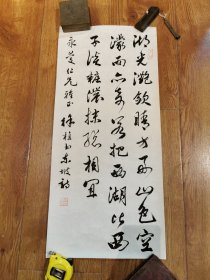 湖光瀲灧晴方好山色空
濛雨亦奇若把西湖比西
子淡粧濃抹總相宜
仁兄雅正 書東坡詩